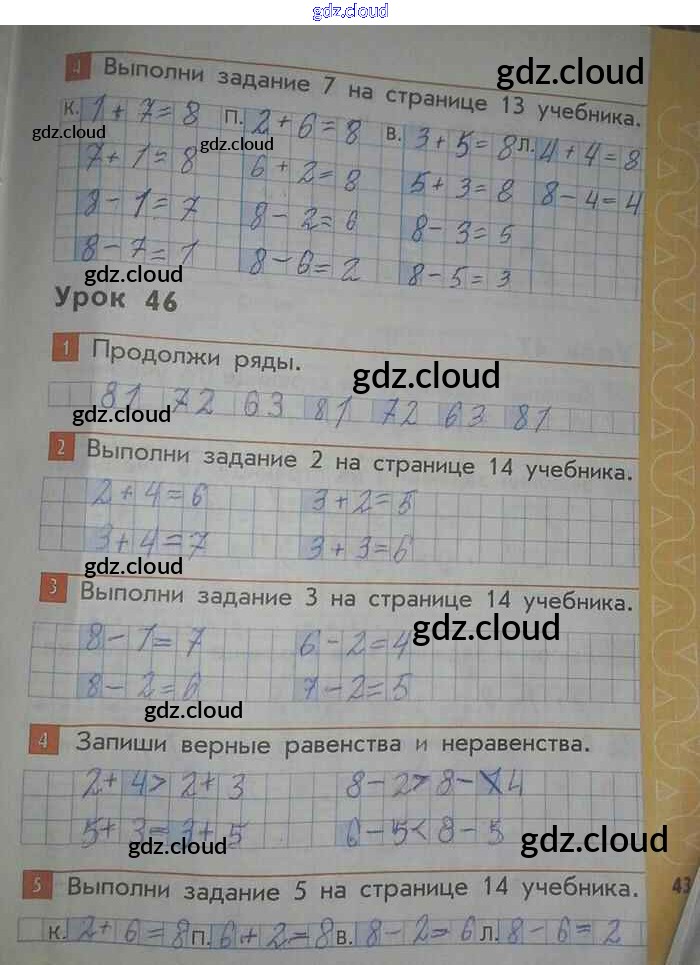 gdz.cloud
4 Выполни задание 7 на странице 13 учебника.
gdz.cloud
К. 1+7=8 П. 2+6=8 В. 3+5=8 Л. 4+4=8
gdz.cloud gdz.cloud
7+1=8 6+2=8 5+3=8 8-4=4
8-1=7 8-2=6 8-3=5
8-7=1 8-6=2 8-5=3
gdz.cloud
Урок 46
1 Продолжи ряды.
gdz.cloud
81 72 63 81 72 63 81
gdz.cloud
2 Выполни задание 2 на странице 14 учебника.
2+4=6 3+2=5
3+4=7 3+3=6
gdz.cloud
3 Выполни задание 3 на странице 14 учебника.
gdz.cloud
8-1=7 6-2=4
8-2=6 7-2=5
gdz.cloud
4 Запиши верные равенства и неравенства.
2+4>2+3 8-2>8-4
5+3=3+5 6-5<8-5
gdz.cloud gdz.cloud
5 Выполни задание 5 на странице 14 учебника. 43
К. 2+6=8 П. 6+2=8 В. 8-2=6 Л. 8-6=2